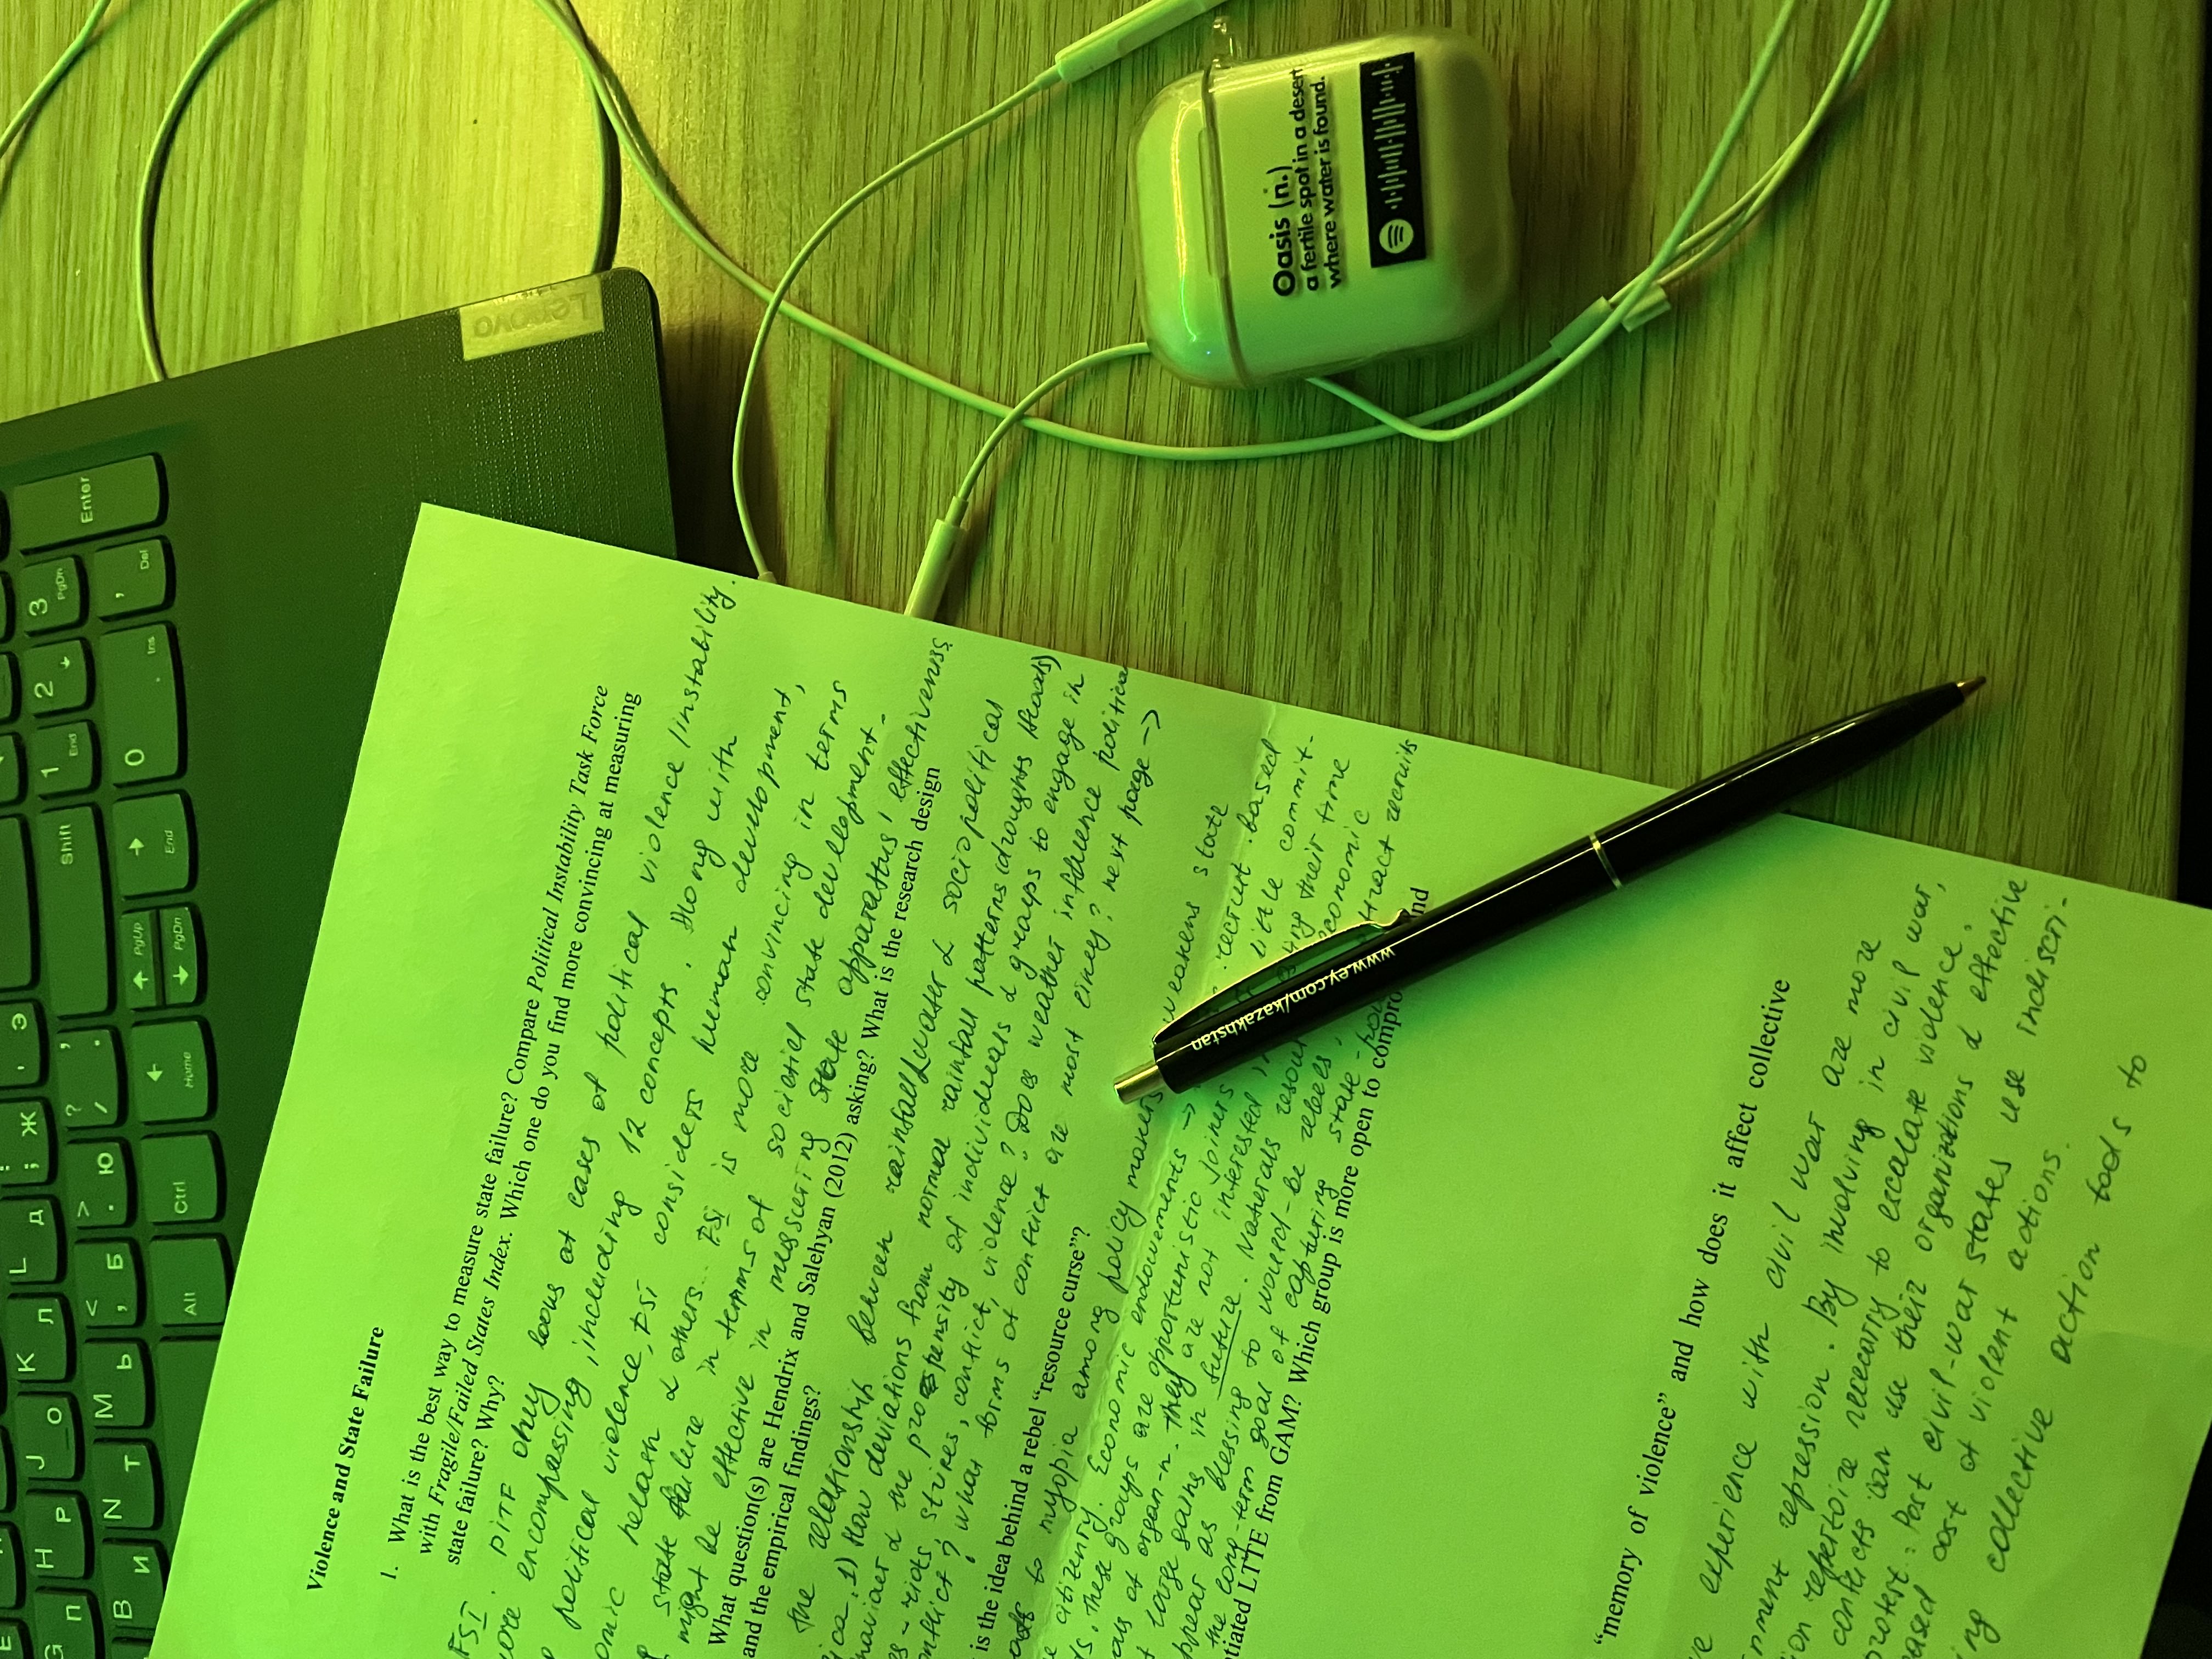 H Р
J О
K Л
L Д
; : Ж
' Э
G П
B И
N Т
M Ь
< , Б
> . Ю
? / , .
Shift
1 End
2
3 PgDn
Enter
Alt
Ctrl
Home
PgUp
PgDn
End
0 Ins
. Del
Lenovo
Violence and State Failure
1. What is the best way to measure state failure? Compare Political Instability Task Force
with Fragile/Failed States Index. Which one do you find more convincing at measuring
state failure? Why?
FSI. PITF only looks at cases of political violence/instability.
encompassing, including 12 concepts. Along with
political violence, FSI considers human development,
& others... FSI is more convincing in terms
state failure in terms of societiel state development.
might be effective in measuring state apparattus' effectiveness.
What question(s) are Hendrix and Salehyan (2012) asking? What is the research design
and the empirical findings?
the relationship between rainfall/water & sociopolitical
1) How deviations from normal rainfall patterns (droughts/floods)
& the propensity of individuals & groups to engage in
riots, strikes, conflict, violence? Does weather influence political
conflict? What forms of conflict are most likely? next page →
is the idea behind a rebel “resource curse”?
to myopia among policy makers weakens state
citizenry. Economic endowements → recruit based
These groups are opportunistic joiners little commit-
of organ-n. They are not interested their time
large gains in future. Naturals economic
appear as blessing to would-be rebels, attract recruits
the long-term goal of capturing state
LTTE from GAM? Which group is more open to nd
“memory of violence” and how does it affect collective
experience with civil war are more
repression. By involving in civil war,
repertoire nececarry to escalate violence.
conflicts can use their organizations & effective
protest. Post civil-war states use indiscri-
cost of violent actions.
collective action tools to
www.ey.com/kazakhstan
Oasis (n.)
a fertile spot in a desert
where water is found.